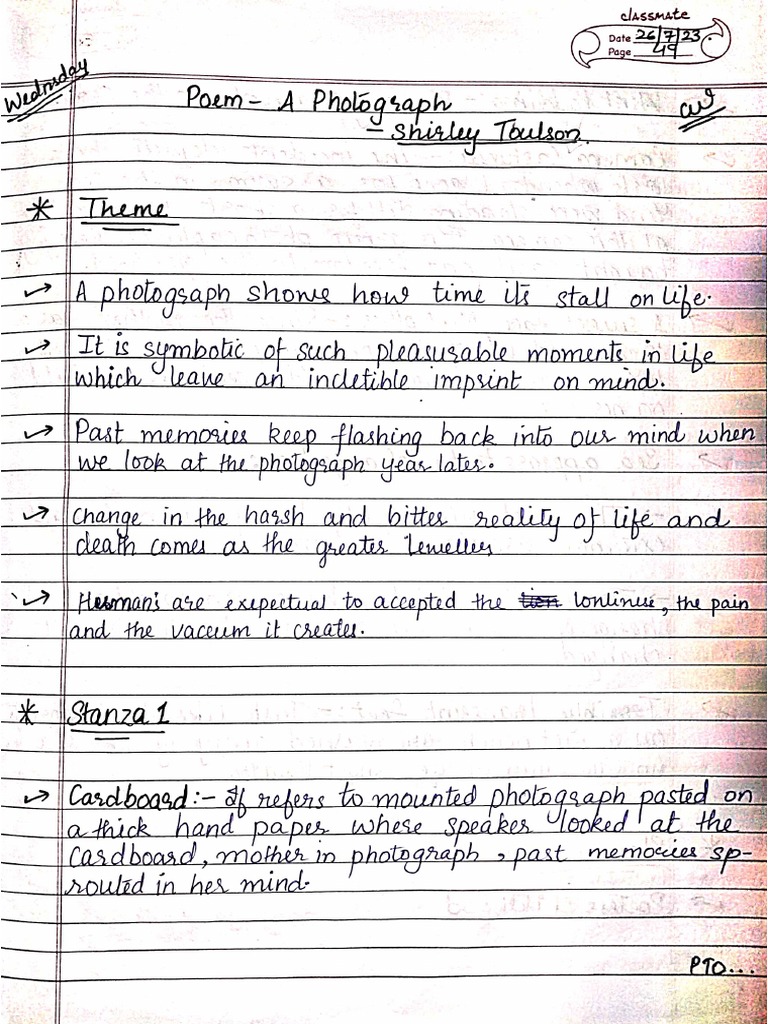 classmate
Date 26/7/23
Page 49
Wednsday
Poem - A Photograph
cw
- Shirley Toulson.
* Theme
A photograph shows how time its stall on life.
It is symbotic of such pleasurable moments in life
which leave an incletible imprint on mind.
Past memories keep flashing back into our mind when
we look at the photograph year later.
Change in the harsh and bitter reality of life and
death comes as the greater
are exepectual to accepted the lonlinese, the pain
and the vaceum it creates.
* Stanza 1
Cardboard:- It refers to mounted photograph pasted on
a thick hand paper where speaker looked at the
cardboard, mother in photograph, past memories sp-
routed in her mind.
PTO...